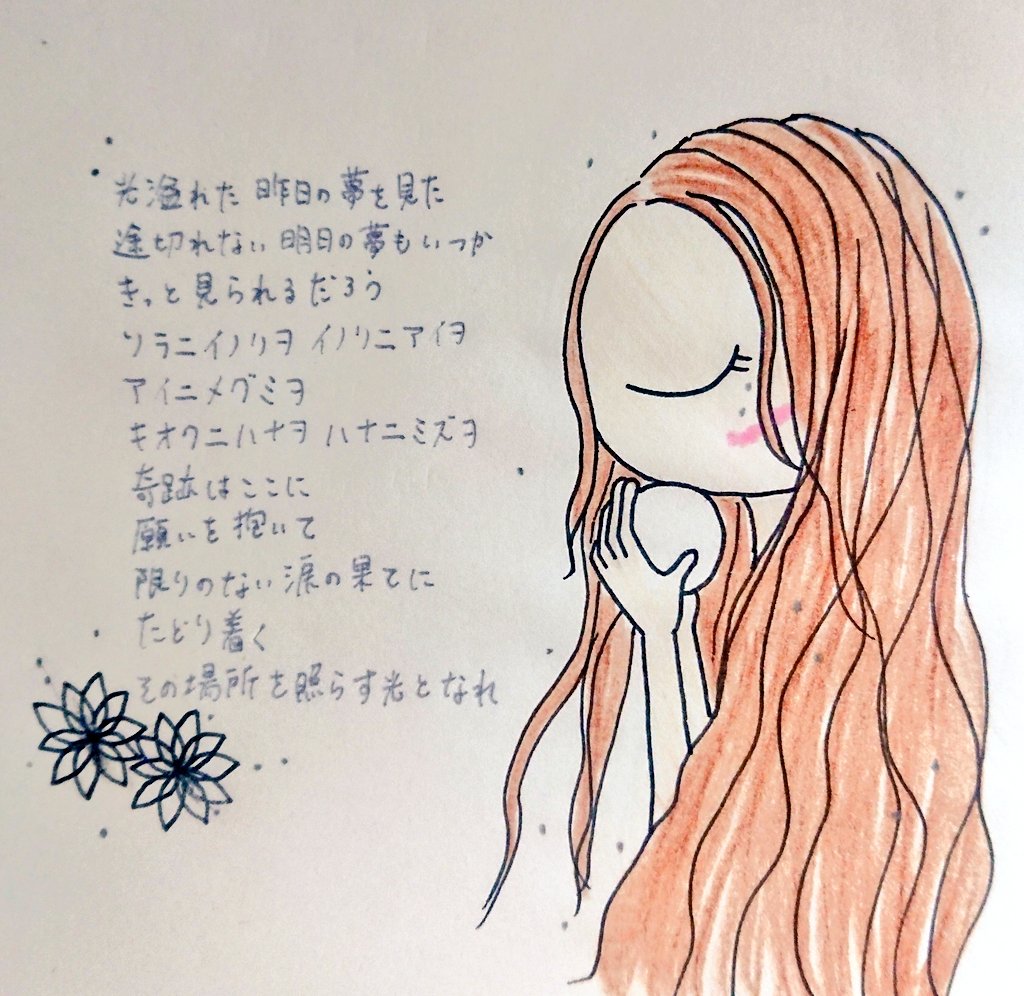 光溢れた 昨日の夢を見た
途切れない 明日の夢もいつか
きっと見られるだろう
ソラニイノリヲ イノリニアイヲ
アイニメグミヲ
キオクニハナヲ ハナニミズヲ
奇跡はここに
願いを抱いて
限りのない涙の果てに
たどり着く
その場所を照らす光となれ